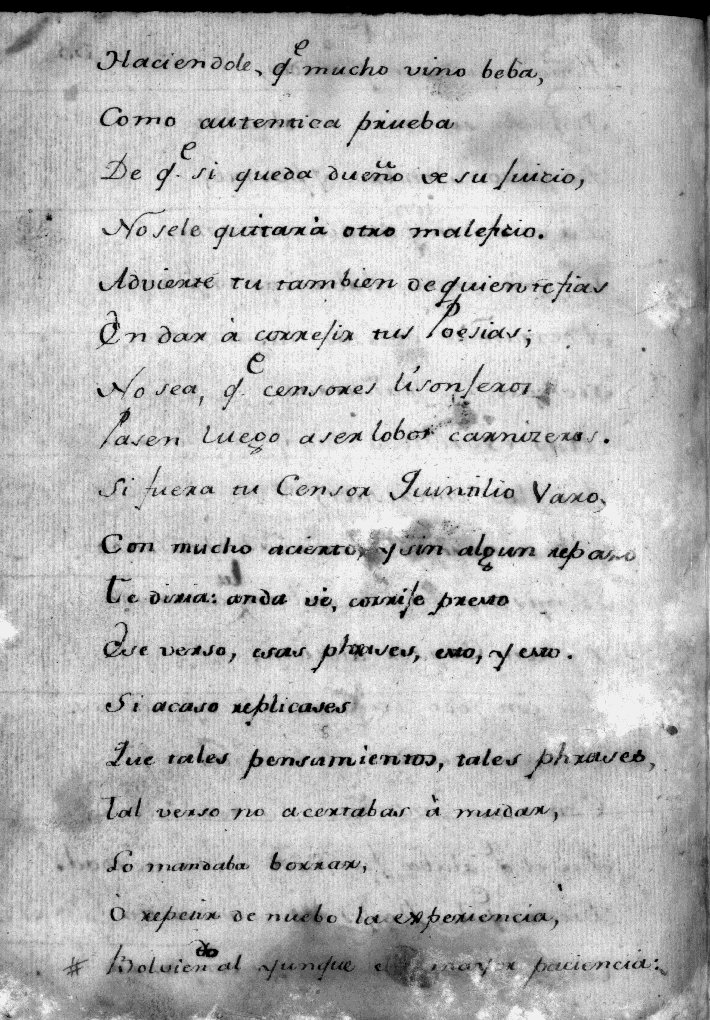 Haciendole, qᵉ mucho vino beba,
Como autentica prueba
De qᵉ. si queda dueño de su juicio,
No sele quitarà otro maleficio.
Advierte tu tambien de quien te fias
En dar à correjir tus Poesias;
No sea, qᵉ. censores lisonjeros
Pasen luego a ser lobos carnizeros.
Si fuera tu Censor Quintilio Varo,
Con mucho acierto, y sin algun reparo
Te diria: anda vè, corrije presto
Ese verso, esas phrases, esto, y esto.
Si acaso replicases
Que tales pensamientos, tales phrases,
Tal verso no acertabas à mudar,
Lo mandaba borrar,
O repetir de nuebo la experiencia,
# Bolviendo al yunque mayor paciencia: